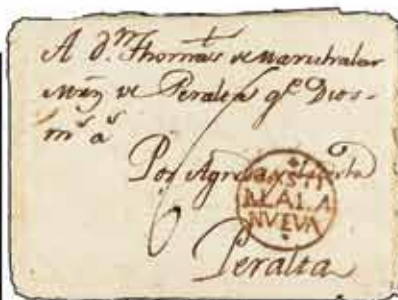 A d.n Thomas de Marichalar
de Peralta q.e Dios
m.s a.s
Por Agreda
CASTI
REALA
NUEVA
Peralta